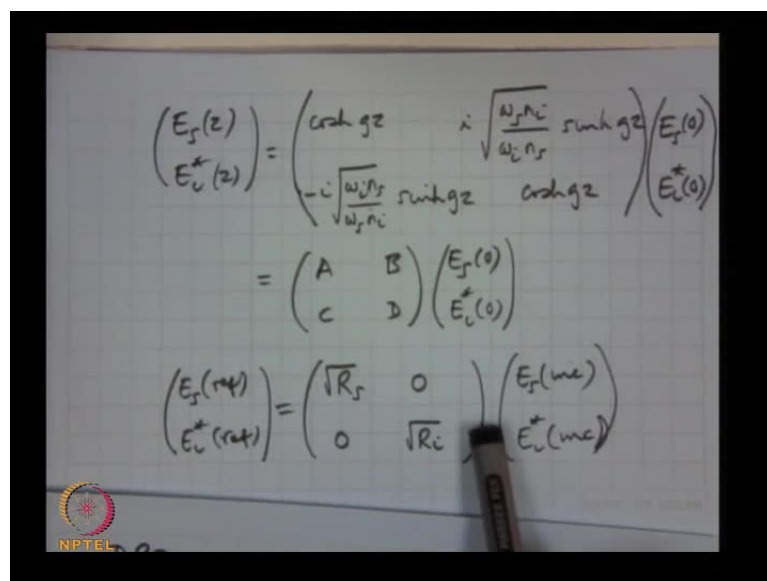 (E_s(z) E_i^*(z)) = (cosh gz   i √(ω_s n_i / ω_i n_s) sinh gz   -i √(ω_i n_s / ω_s n_i) sinh gz   cosh gz) (E_s(0) E_i^*(0))
= (A B C D) (E_s(0) E_i^*(0))
(E_s(ref) E_i^*(ref)) = (√R_s 0 0 √R_i) (E_s(inc) E_i^*(inc))
NPTEL